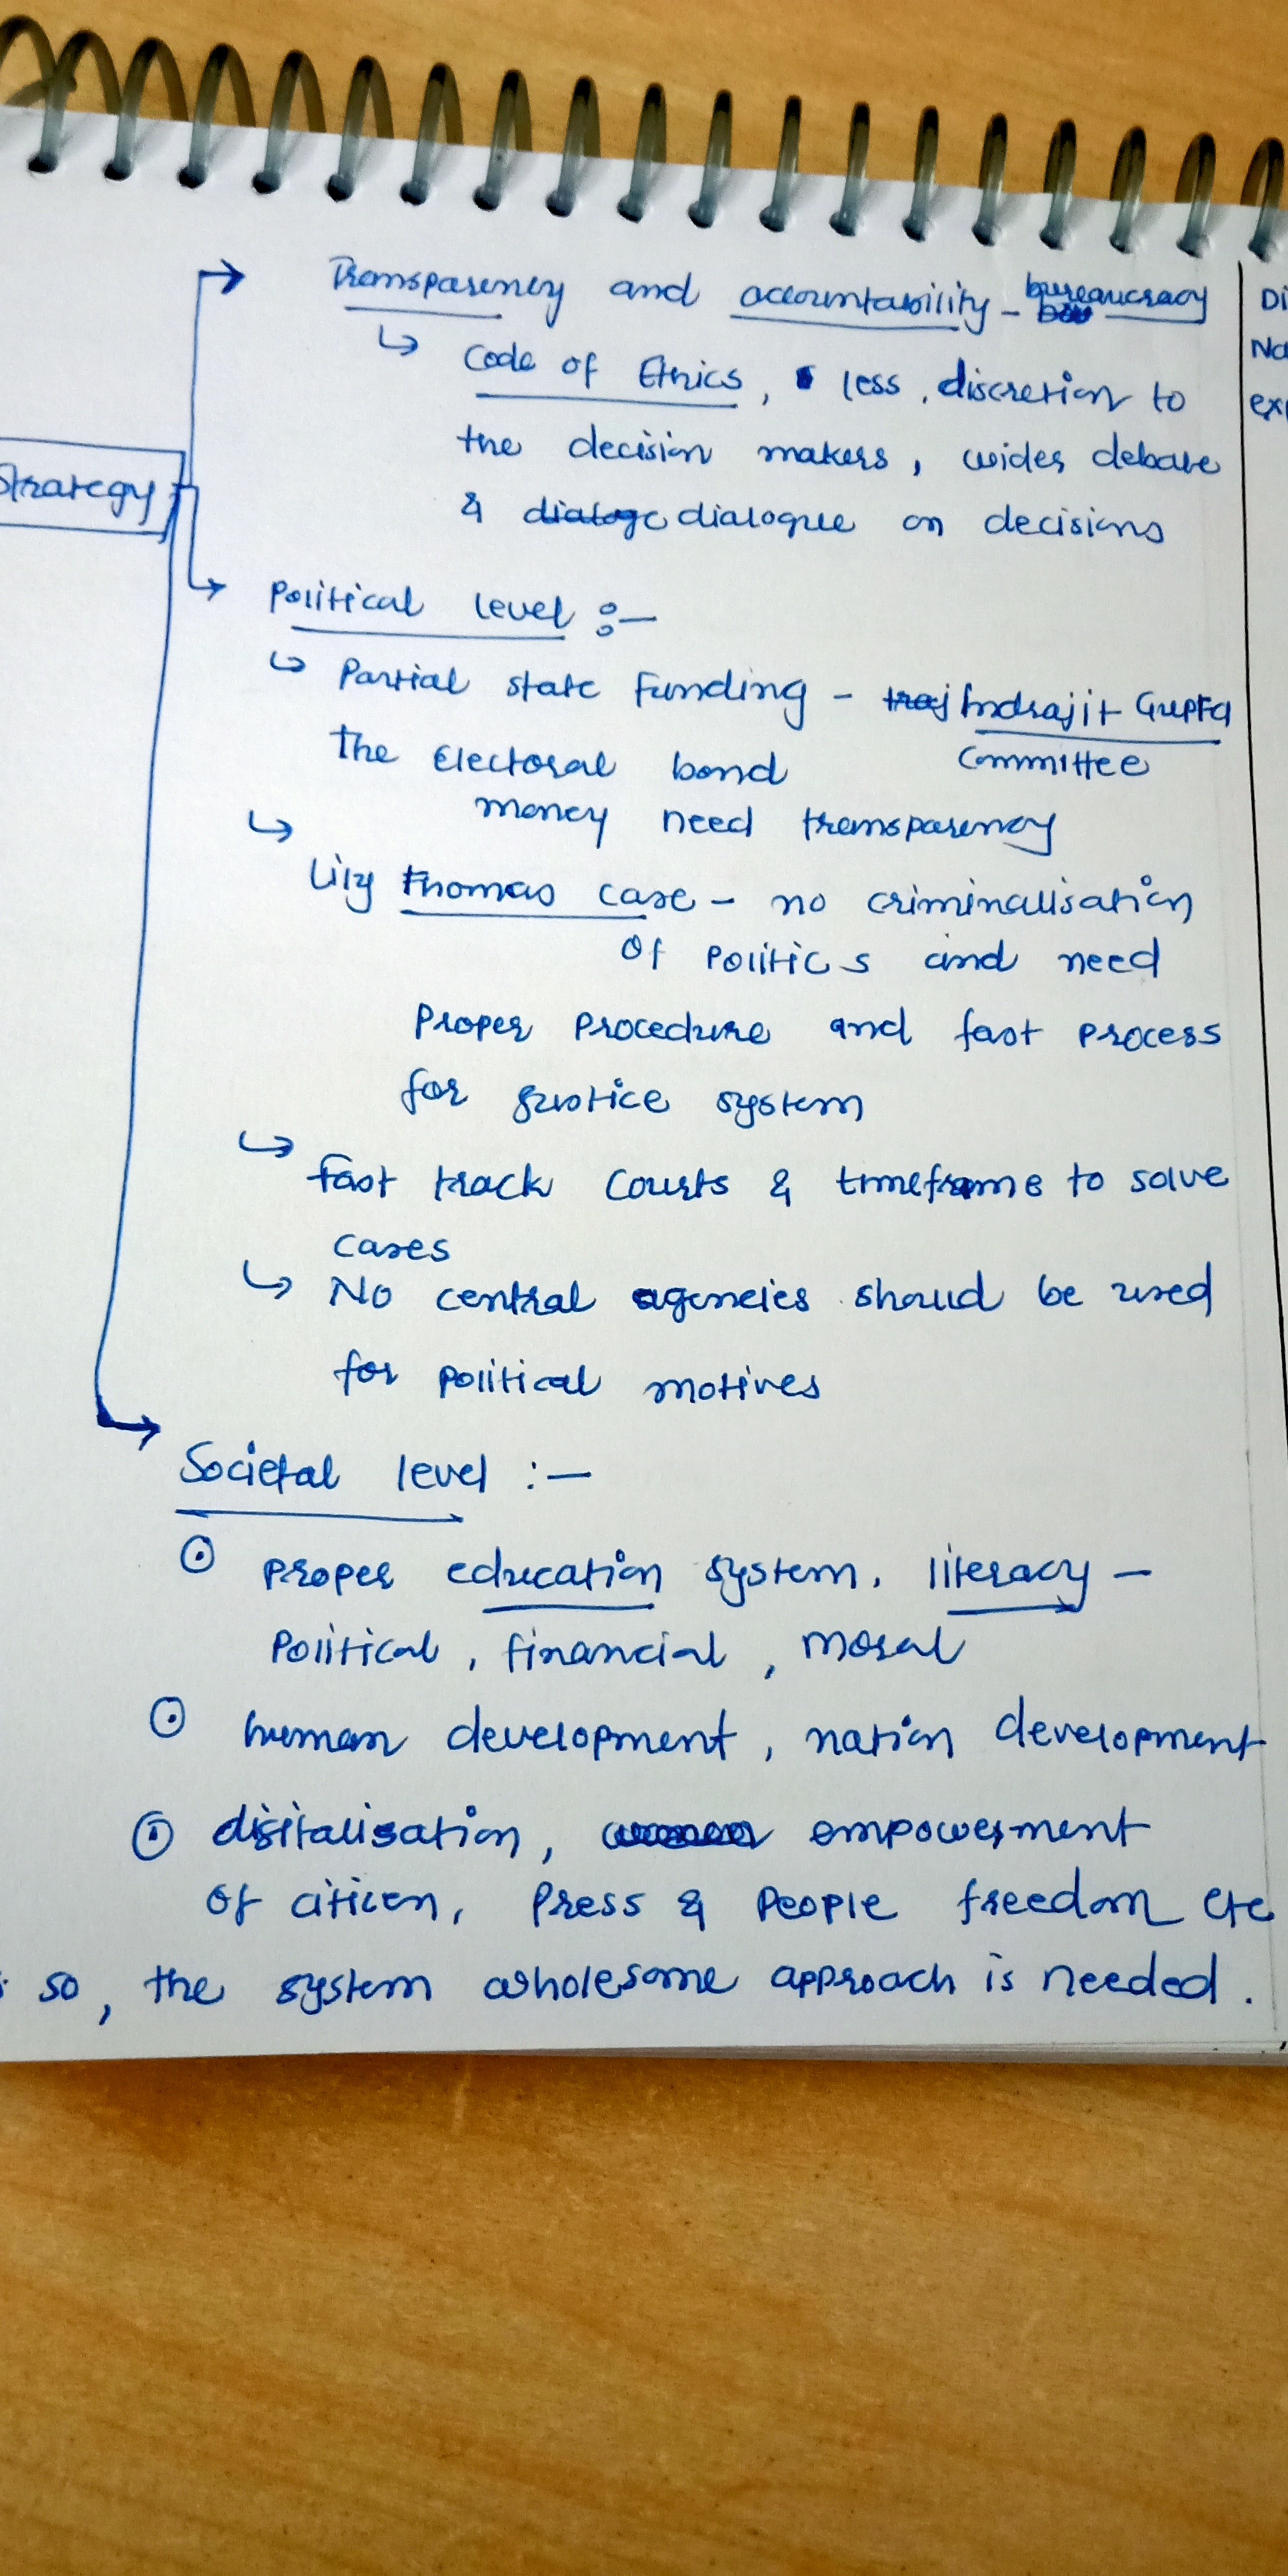 Transparency and accountability - bureaucracy
Code of Ethics, less discretion to
the decision makers, wider debate
& dialoge dialogue on decisions
Strategy
Political level :-
Partial state funding - Indrajit Gupta
Committee
the electoral bond
money need transparency
Lily Thomas case - no criminalisation
of politics and need
proper procedure and fast process
for justice system
fast track courts & timeframe to solve
cases
No central agencies should be used
for political motives
Societal level :-
proper education system, literacy -
political, financial, moral
human development, nation development
digitalisation, empowerment
of citizen, press & people freedom etc
so, the system wholesome approach is needed.
Di
No
exp